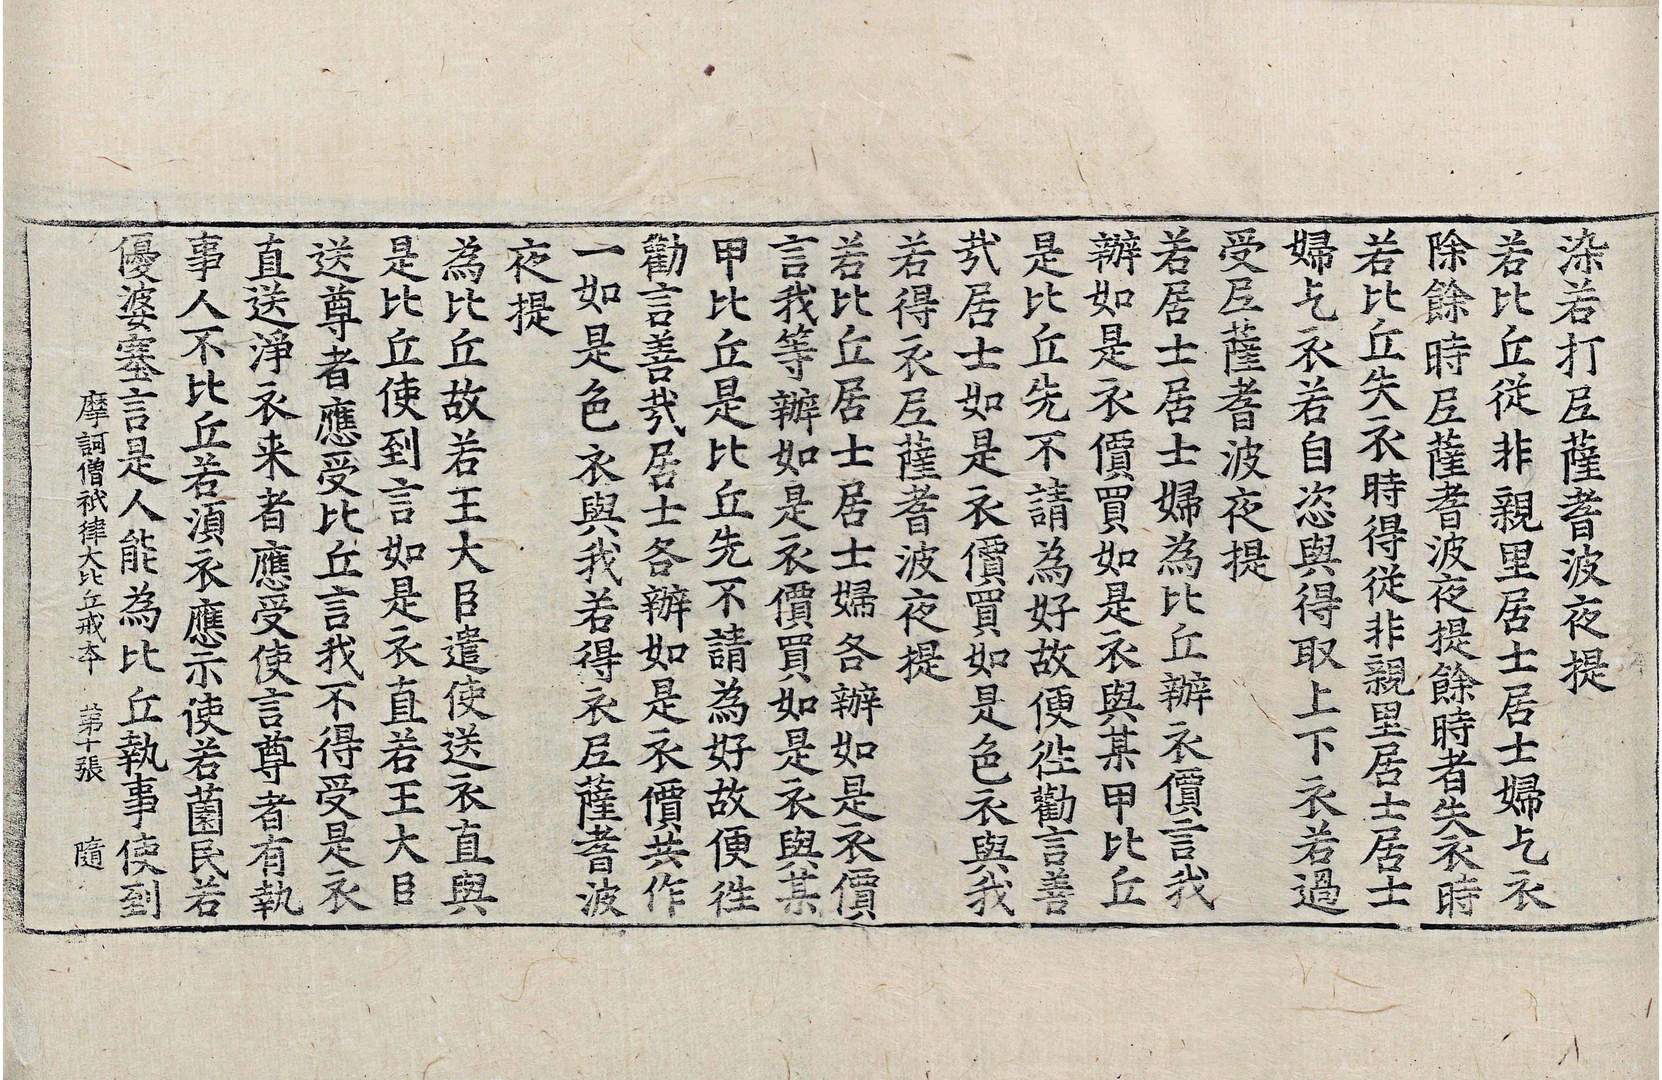 染若打尼薩耆波夜提
若比丘從非親里居士居士婦乞衣
除餘時尼薩耆波夜提餘時者失衣時
若比丘失衣時得從非親里居士居士
婦乞衣若自恣與得取上下衣若過
受尼薩耆波夜提
若居士居士婦為比丘辦衣價言我
辦如是衣價買如是衣與某甲比丘
是比丘先不請為好故便往勸言善
哉居士如是衣價買如是色衣與我
若得衣尼薩耆波夜提
若比丘居士居士婦各辦如是衣價
言我等辦如是衣價買如是衣與某
甲比丘是比丘先不請為好故便往
勸言善哉居士各辦如是衣價共作
一如是色衣與我若得衣尼薩耆波
夜提
為比丘故若王大臣遣使送衣直與
是比丘使到言如是衣直若王大臣
送尊者應受比丘言我不得受是衣
直送淨衣来者應受使言尊者有執
事人不比丘若湏衣應示使若薗民若
優婆塞言是人能為比丘執事使到
摩訶僧祇律大比丘戒本 苐十張 隨